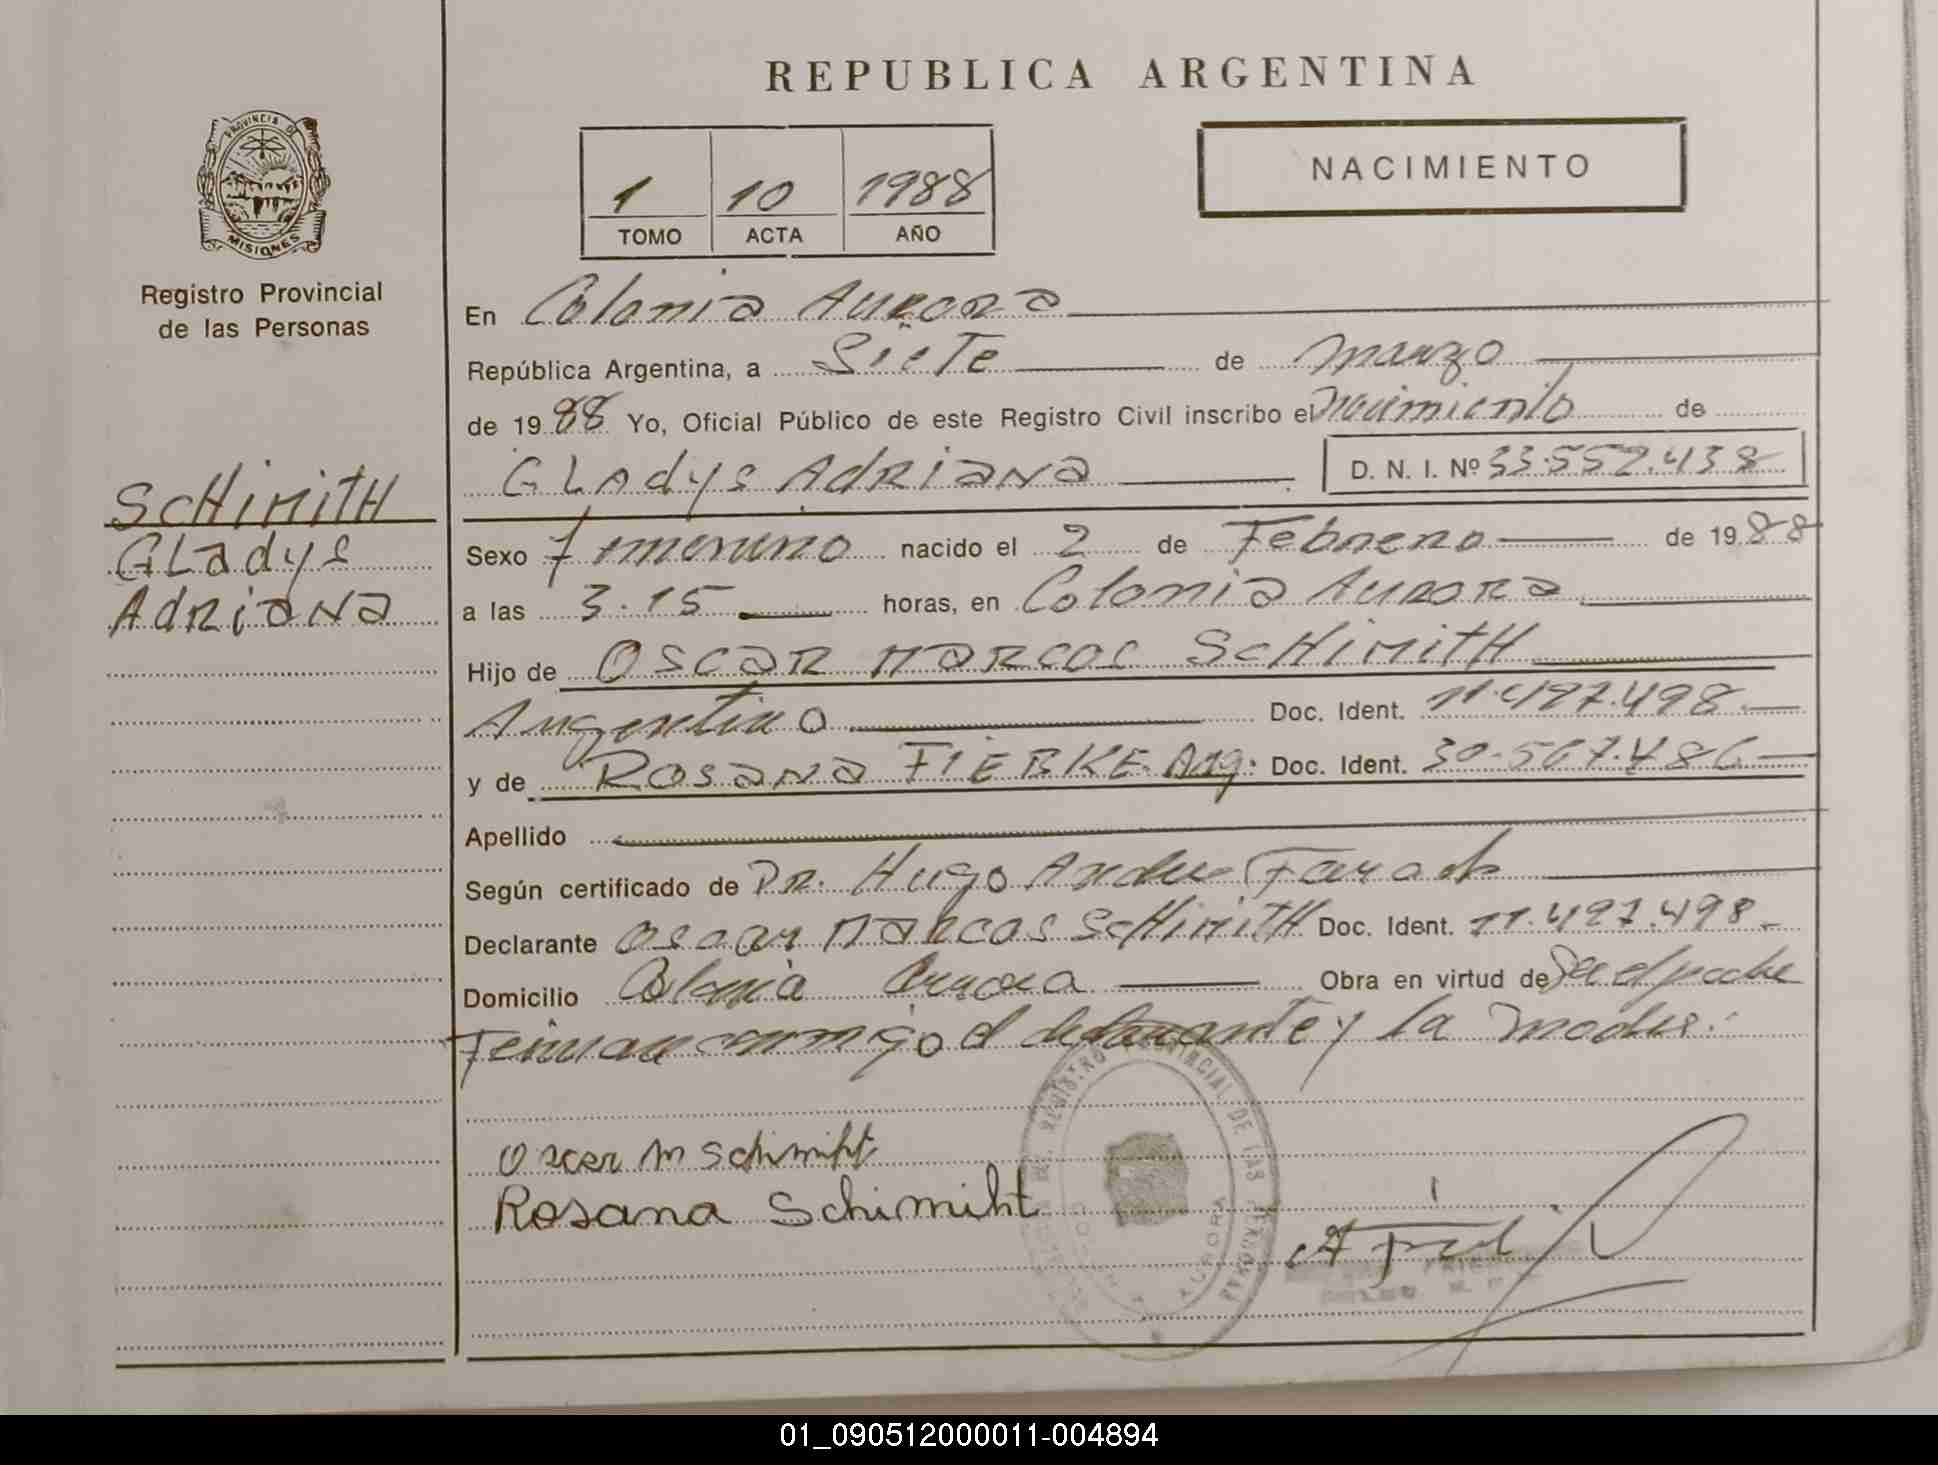 REPUBLICA ARGENTINA
NACIMIENTO
1 10 1988
TOMO ACTA AÑO
PROVINCIA DE
MISIONES
Registro Provincial
de las Personas
SCHIMITH
GLadys
AdRiaNa
En Colonia Aurora
República Argentina, a Siete de marzo
de 1988 Yo, Oficial Público de este Registro Civil inscribo el nacimiento de
GLAdys AdRiaNa D. N. I. Nº 33.552.438
Sexo femenino nacido el 2 de Febrero de 1988
a las 3.15 horas, en Colonia Aurora
Hijo de OSCAR MARCOS SCHIMITH
Argentino Doc. Ident. 11.497.498.
y de ROSANA FIEBKE Arg. Doc. Ident. 30.567.486
Apellido
Según certificado de Dr. Hugo
Declarante oscar MARCOS SCHIMITH Doc. Ident. 11.497.498.
Domicilio Colonia Aurora Obra en virtud de Ser el padre
Firman conmigo el declarante y la madre.
Oscar M Schimiht
Rosana Schimiht
REGISTRO PROVINCIAL DE LAS PERSONAS
AURORA
01_090512000011-004894